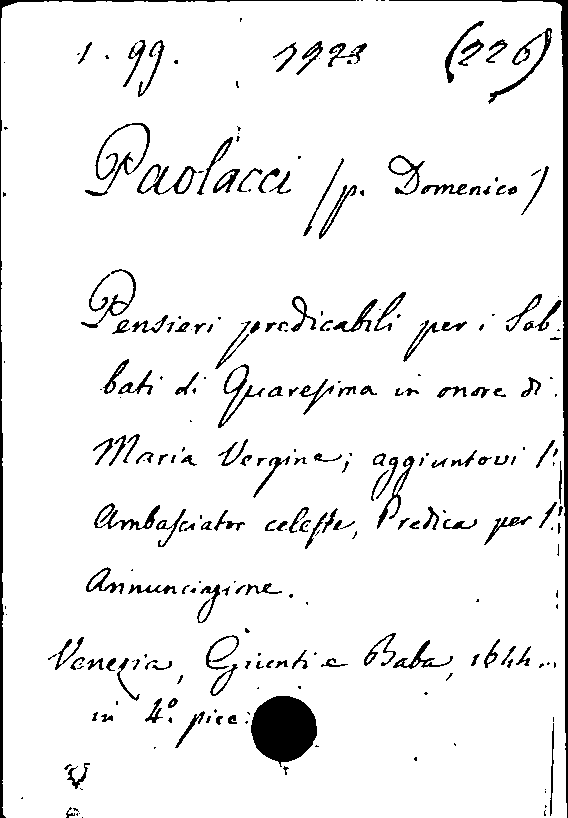 1. 99. 7973 (226)
Paolacci (p. Domenico)
Pensieri predicabili per i Sab-
bati di Quaresima in onore di
Maria Vergine; aggiuntovi l'
Ambasciator celeste, Predica per l'
Annunciazione.
Venezia, Giunti e Baba, 1644.
in 4.º picc: